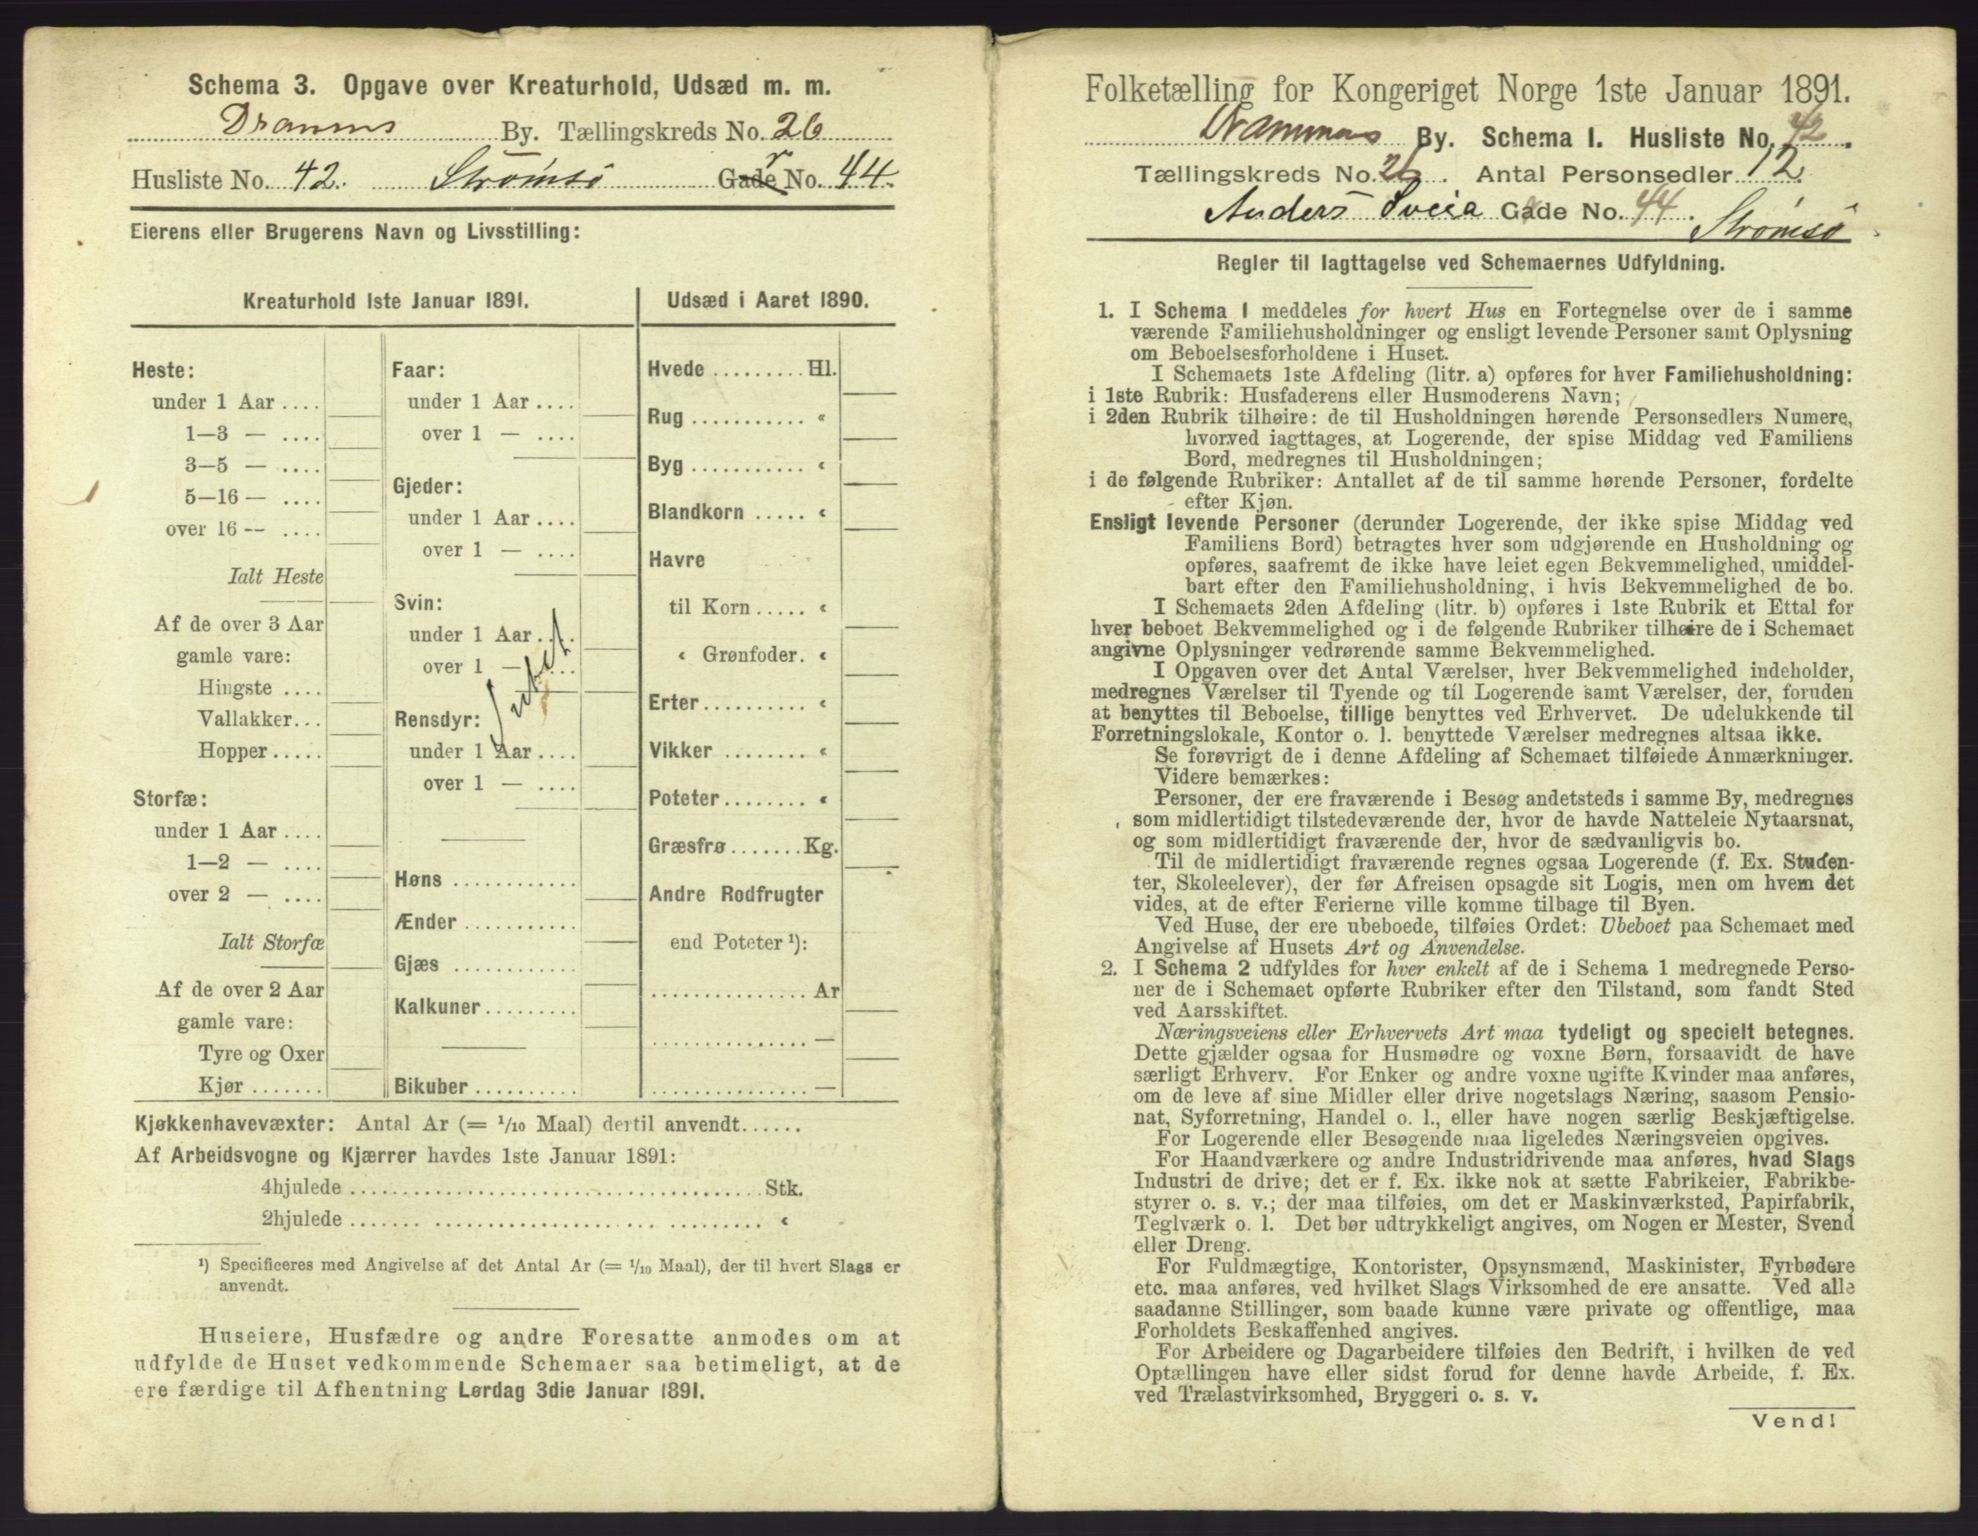 Schema 3. Opgave over Kreaturhold, Udsæd m. m.
Dramms By. Tællingskreds No. 26
Husliste No. 42. Strømsø Gade No. 44.
Eierens eller Brugerens Navn og Livsstilling:
Kreaturhold 1ste Januar 1891.
Heste:
under 1 Aar ....
1—3 — ....
3—5 — ....
5—16 — ....
over 16 — ....
Ialt Heste
Af de over 3 Aar
gamle vare:
Hingste ....
Vallakker...
Hopper.....
Storfæ:
under 1 Aar ....
1—2 — ....
over 2 — ....
Ialt Storfæ
Af de over 2 Aar
gamle vare:
Tyre og Oxer
Kjør .......
Faar:
under 1 Aar ....
over 1 — ....
Gjeder:
under 1 Aar ....
over 1 — ....
Svin:
under 1 Aar ....
over 1 — ....
Intet
Rensdyr:
under 1 Aar ....
over 1 — ....
Høns ............
Ænder ...........
Gjæs ............
Kalkuner.........
Bikuber..........
Udsæd i Aaret 1890.
Hvede ......... Hl.
Rug ........... «
Byg ........... «
Blandkorn ..... «
Havre
til Korn ..... «
« Grønfoder. «
Erter.......... «
Vikker ........ «
Poteter........ «
Græsfrø .......Kg.
Andre Rodfrugter
end Poteter ¹):
............... Ar
............... —
............... —
Kjøkkenhavevæxter: Antal Ar (= 1/10 Maal) dertil anvendt......
Af Arbeidsvogne og Kjærrer havdes 1ste Januar 1891:
4hjulede ........................................ Stk.
2hjulede ....... .................... ......... «
¹) Specificeres med Angivelse af det Antal Ar (= 1/10 Maal), der til hvert Slags er
anvendt.
Huseiere, Husfædre og andre Foresatte anmodes om at
udfylde de Huset vedkommende Schemaer saa betimeligt, at de
ere færdige til Afhentning Lørdag 3die Januar 1891.
Folketælling for Kongeriget Norge 1ste Januar 1891.
Drammens By. Schema I. Husliste No. 42.
Tællingskreds No. 26. Antal Personsedler 12.
Anders Sveia Gade No. 44. Strømsø
Regler til Iagttagelse ved Schemaernes Udfyldning.
1. I Schema 1 meddeles for hvert Hus en Fortegnelse over de i samme
værende Familiehusholdninger og ensligt levende Personer samt Oplysning
om Beboelsesforholdene i Huset.
I Schemaets 1ste Afdeling (litr. a) opføres for hver Familiehusholdning:
i 1ste Rubrik: Husfaderens eller Husmoderens Navn;
i 2den Rubrik tilhøire: de til Husholdningen hørende Personsedlers Numere,
hvorved iagttages, at Logerende, der spise Middag ved Familiens
Bord, medregnes til Husholdningen;
i de følgende Rubriker: Antallet af de til samme hørende Personer, fordelte
efter Kjøn.
Ensligt levende Personer (derunder Logerende, der ikke spise Middag ved
Familiens Bord) betragtes hver som udgjørende en Husholdning og
opføres, saafremt de ikke have leiet egen Bekvemmelighed, umiddel-
bart efter den Familiehusholdning, i hvis Bekvemmelighed de bo.
I Schemaets 2den Afdeling (litr. b) opføres i 1ste Rubrik et Ettal for
hver beboet Bekvemmelighed og i de følgende Rubriker tilhøire de i Schemaet
angivne Oplysninger vedrørende samme Bekvemmelighed.
I Opgaven over det Antal Værelser, hver Bekvemmelighed indeholder,
medregnes Værelser til Tyende og til Logerende samt Værelser, der, foruden
at benyttes til Beboelse, tillige benyttes ved Erhvervet. De udelukkende til
Forretningslokale, Kontor o. l. benyttede Værelser medregnes altsaa ikke.
Se forøvrigt de i denne Afdeling af Schemaet tilføiede Anmærkninger.
Videre bemærkes:
Personer, der ere fraværende i Besøg andetsteds i samme By, medregnes
som midlertidigt tilstedeværende der, hvor de havde Natteleie Nytaarsnat,
og som midlertidigt fraværende der, hvor de sædvanligvis bo.
Til de midlertidigt fraværende regnes ogsaa Logerende (f. Ex. Studen-
ter, Skoleelever), der før Afreisen opsagde sit Logis, men om hvem det
vides, at de efter Ferierne ville komme tilbage til Byen.
Ved Huse, der ere ubeboede, tilføies Ordet: Ubeboet paa Schemaet med
Angivelse af Husets Art og Anvendelse.
2. I Schema 2 udfyldes for hver enkelt af de i Schema 1 medregnede Perso-
ner de i Schemaet opførte Rubriker efter den Tilstand, som fandt Sted
ved Aarsskiftet.
Næringsveiens eller Erhvervets Art maa tydeligt og specielt betegnes.
Dette gjælder ogsaa for Husmødre og voxne Børn, forsaavidt de have
særligt Erhverv. For Enker og andre voxne ugifte Kvinder maa anføres,
om de leve af sine Midler eller drive nogetslags Næring, saasom Pensio-
nat, Syforretning, Handel o. l., eller have nogen særlig Beskjæftigelse.
For Logerende eller Besøgende maa ligeledes Næringsveien opgives.
For Haandværkere og andre Industridrivende maa anføres, hvad Slags
Industri de drive; det er f. Ex. ikke nok at sætte Fabrikeier, Fabrikbe-
styrer o. s. v.; der maa tilføies, om det er Maskinværksted, Papirfabrik,
Teglværk o. l. Det bør udtrykkeligt angives, om Nogen er Mester, Svend
eller Dreng.
For Fuldmægtige, Kontorister, Opsynsmænd, Maskinister, Fyrbødere
etc. maa anføres, ved hvilket Slags Virksomhed de ere ansatte. Ved alle
saadanne Stillinger, som baade kunne være private og offentlige, maa
Forholdets Beskaffenhed angives.
For Arbeidere og Dagarbeidere tilføies den Bedrift, i hvilken de ved
Optællingen have eller sidst forud for denne havde Arbeide, f. Ex.
ved Trælastvirksomhed, Bryggeri o. s. v.
Vend!